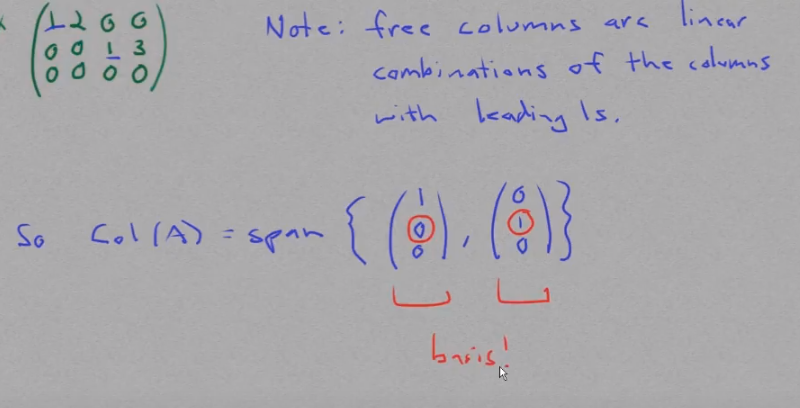 1 2 0 0
0 0 1 3
0 0 0 0
Note: free columns are linear
combinations of the columns
with leading 1s.
So Col(A) = span { (1 0 0), (0 1 0) }
basis!